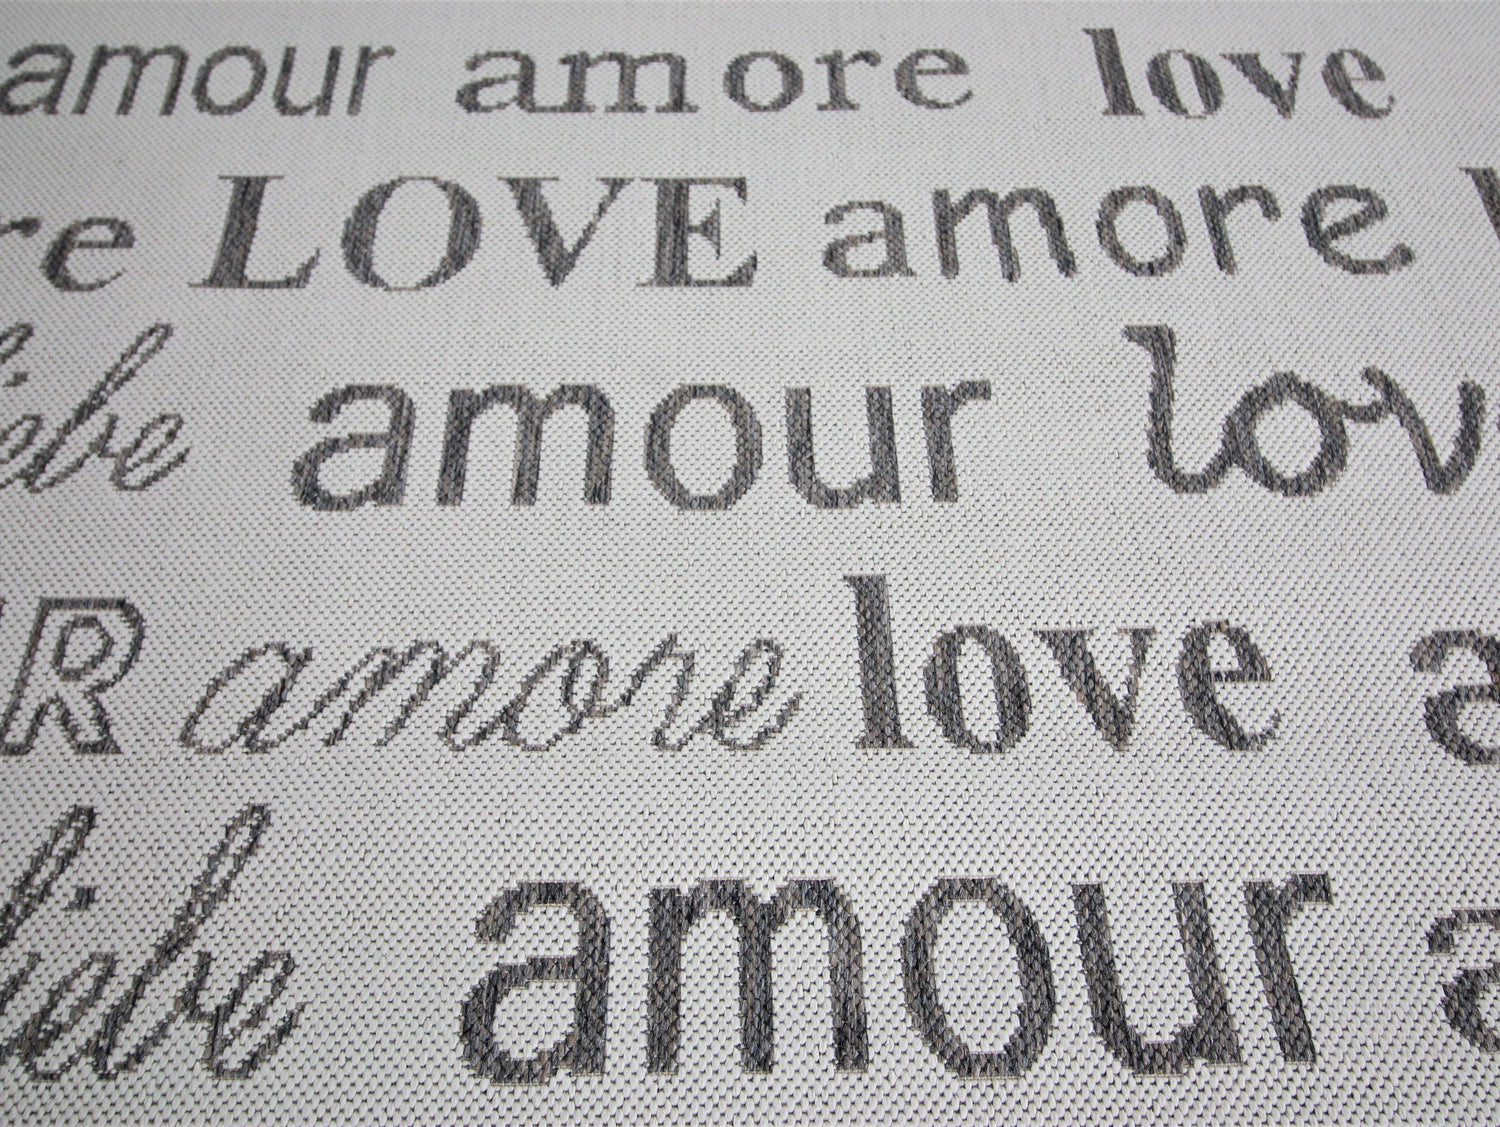 amour amore love
re LOVE amore
liebe amour lov
R amore love a
liebe amour a